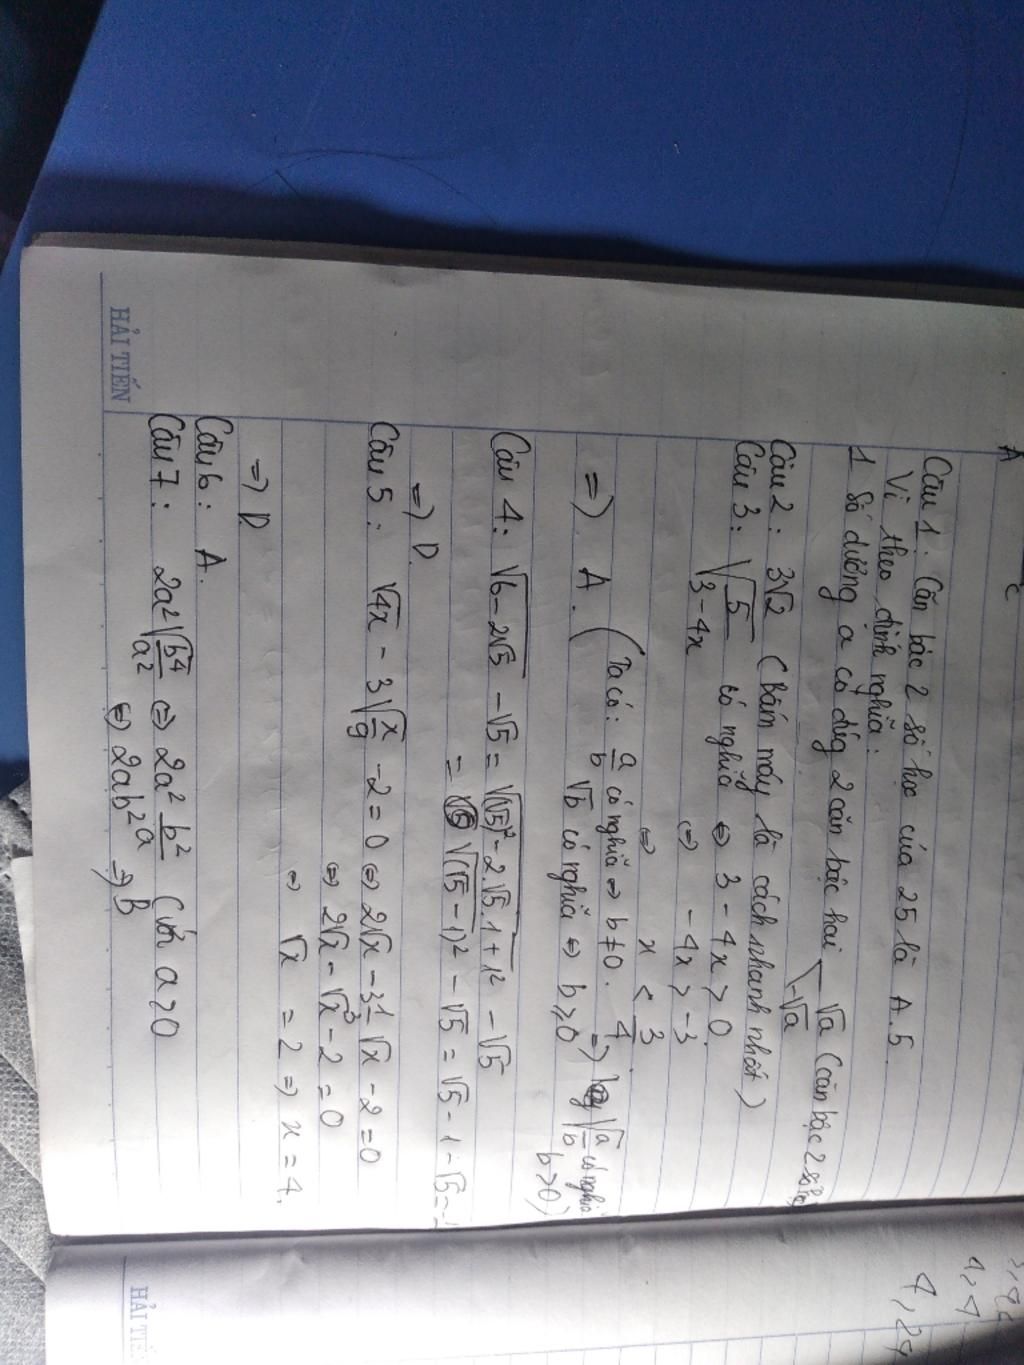 A
C
Câu 1. Căn bậc 2 số học của 25 là A. 5
Vì theo định nghĩa:
1 số dương a có đúng 2 căn bậc hai √a (căn bậc 2 số học)
-√a
Câu 2: 3√2 (Bấm máy là cách nhanh nhất)
Câu 3: √(5/(3-4x)) có nghĩa ⇔ 3 - 4x > 0
⇔ -4x > -3
⇔ x < 3/4
=> A. (Ta có: a/b có nghĩa ⇔ b ≠ 0. => √(a/b) có nghĩa
√b có nghĩa ⇔ b ≥ 0 b > 0)
Câu 4: √(6-2√5) - √5 = √((√5)² - 2.√5.1 + 1²) - √5
= √((√5 - 1)²) - √5 = √5 - 1 - √5 = -1
=> D
Câu 5: √4x - 3√(x/9) - 2 = 0 ⇔ 2√x - 3 1/3 √x - 2 = 0
⇔ 2√x - √x - 2 = 0
⇔ √x = 2 => x = 4.
=> D
Câu 6: A.
Câu 7: 2a² √(b⁴/a²) ⇔ 2a² b²/a (với a > 0
⇔ 2ab² => B
HẢI TIẾN
4,24
HẢI TIẾ